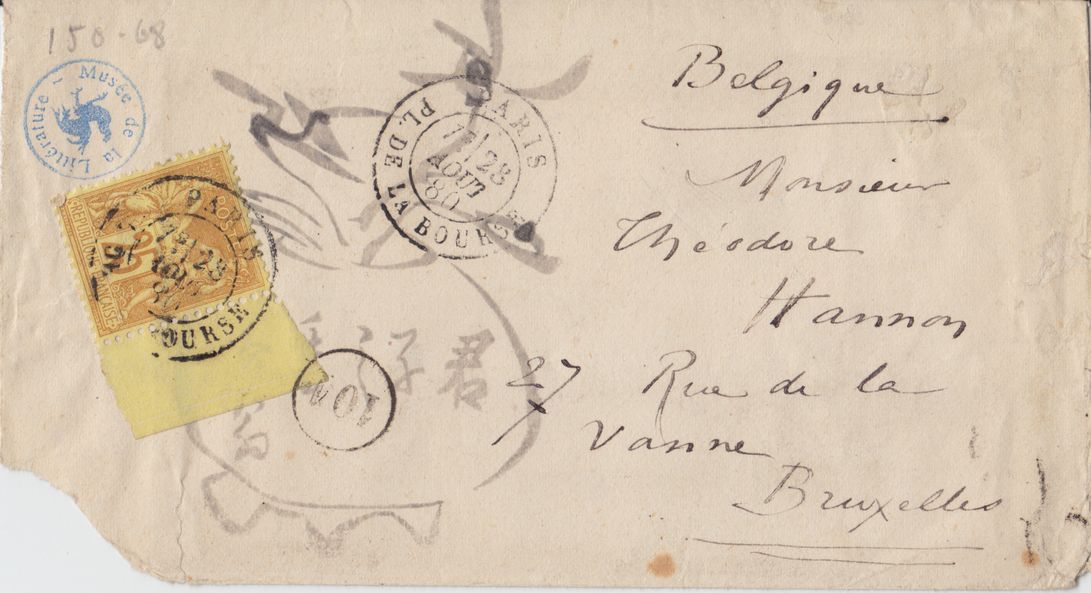 150-68
Musée de la Littérature -
PARIS
PL. DE LA BOURSE
7E 28
AOUT
80
REPUBLIQUE FRANÇAISE
25
PARIS
28
BOURSE
104
君
Belgique
Monsieur
Théodore
Hannon
27 Rue de la
Vanne
Bruxelles